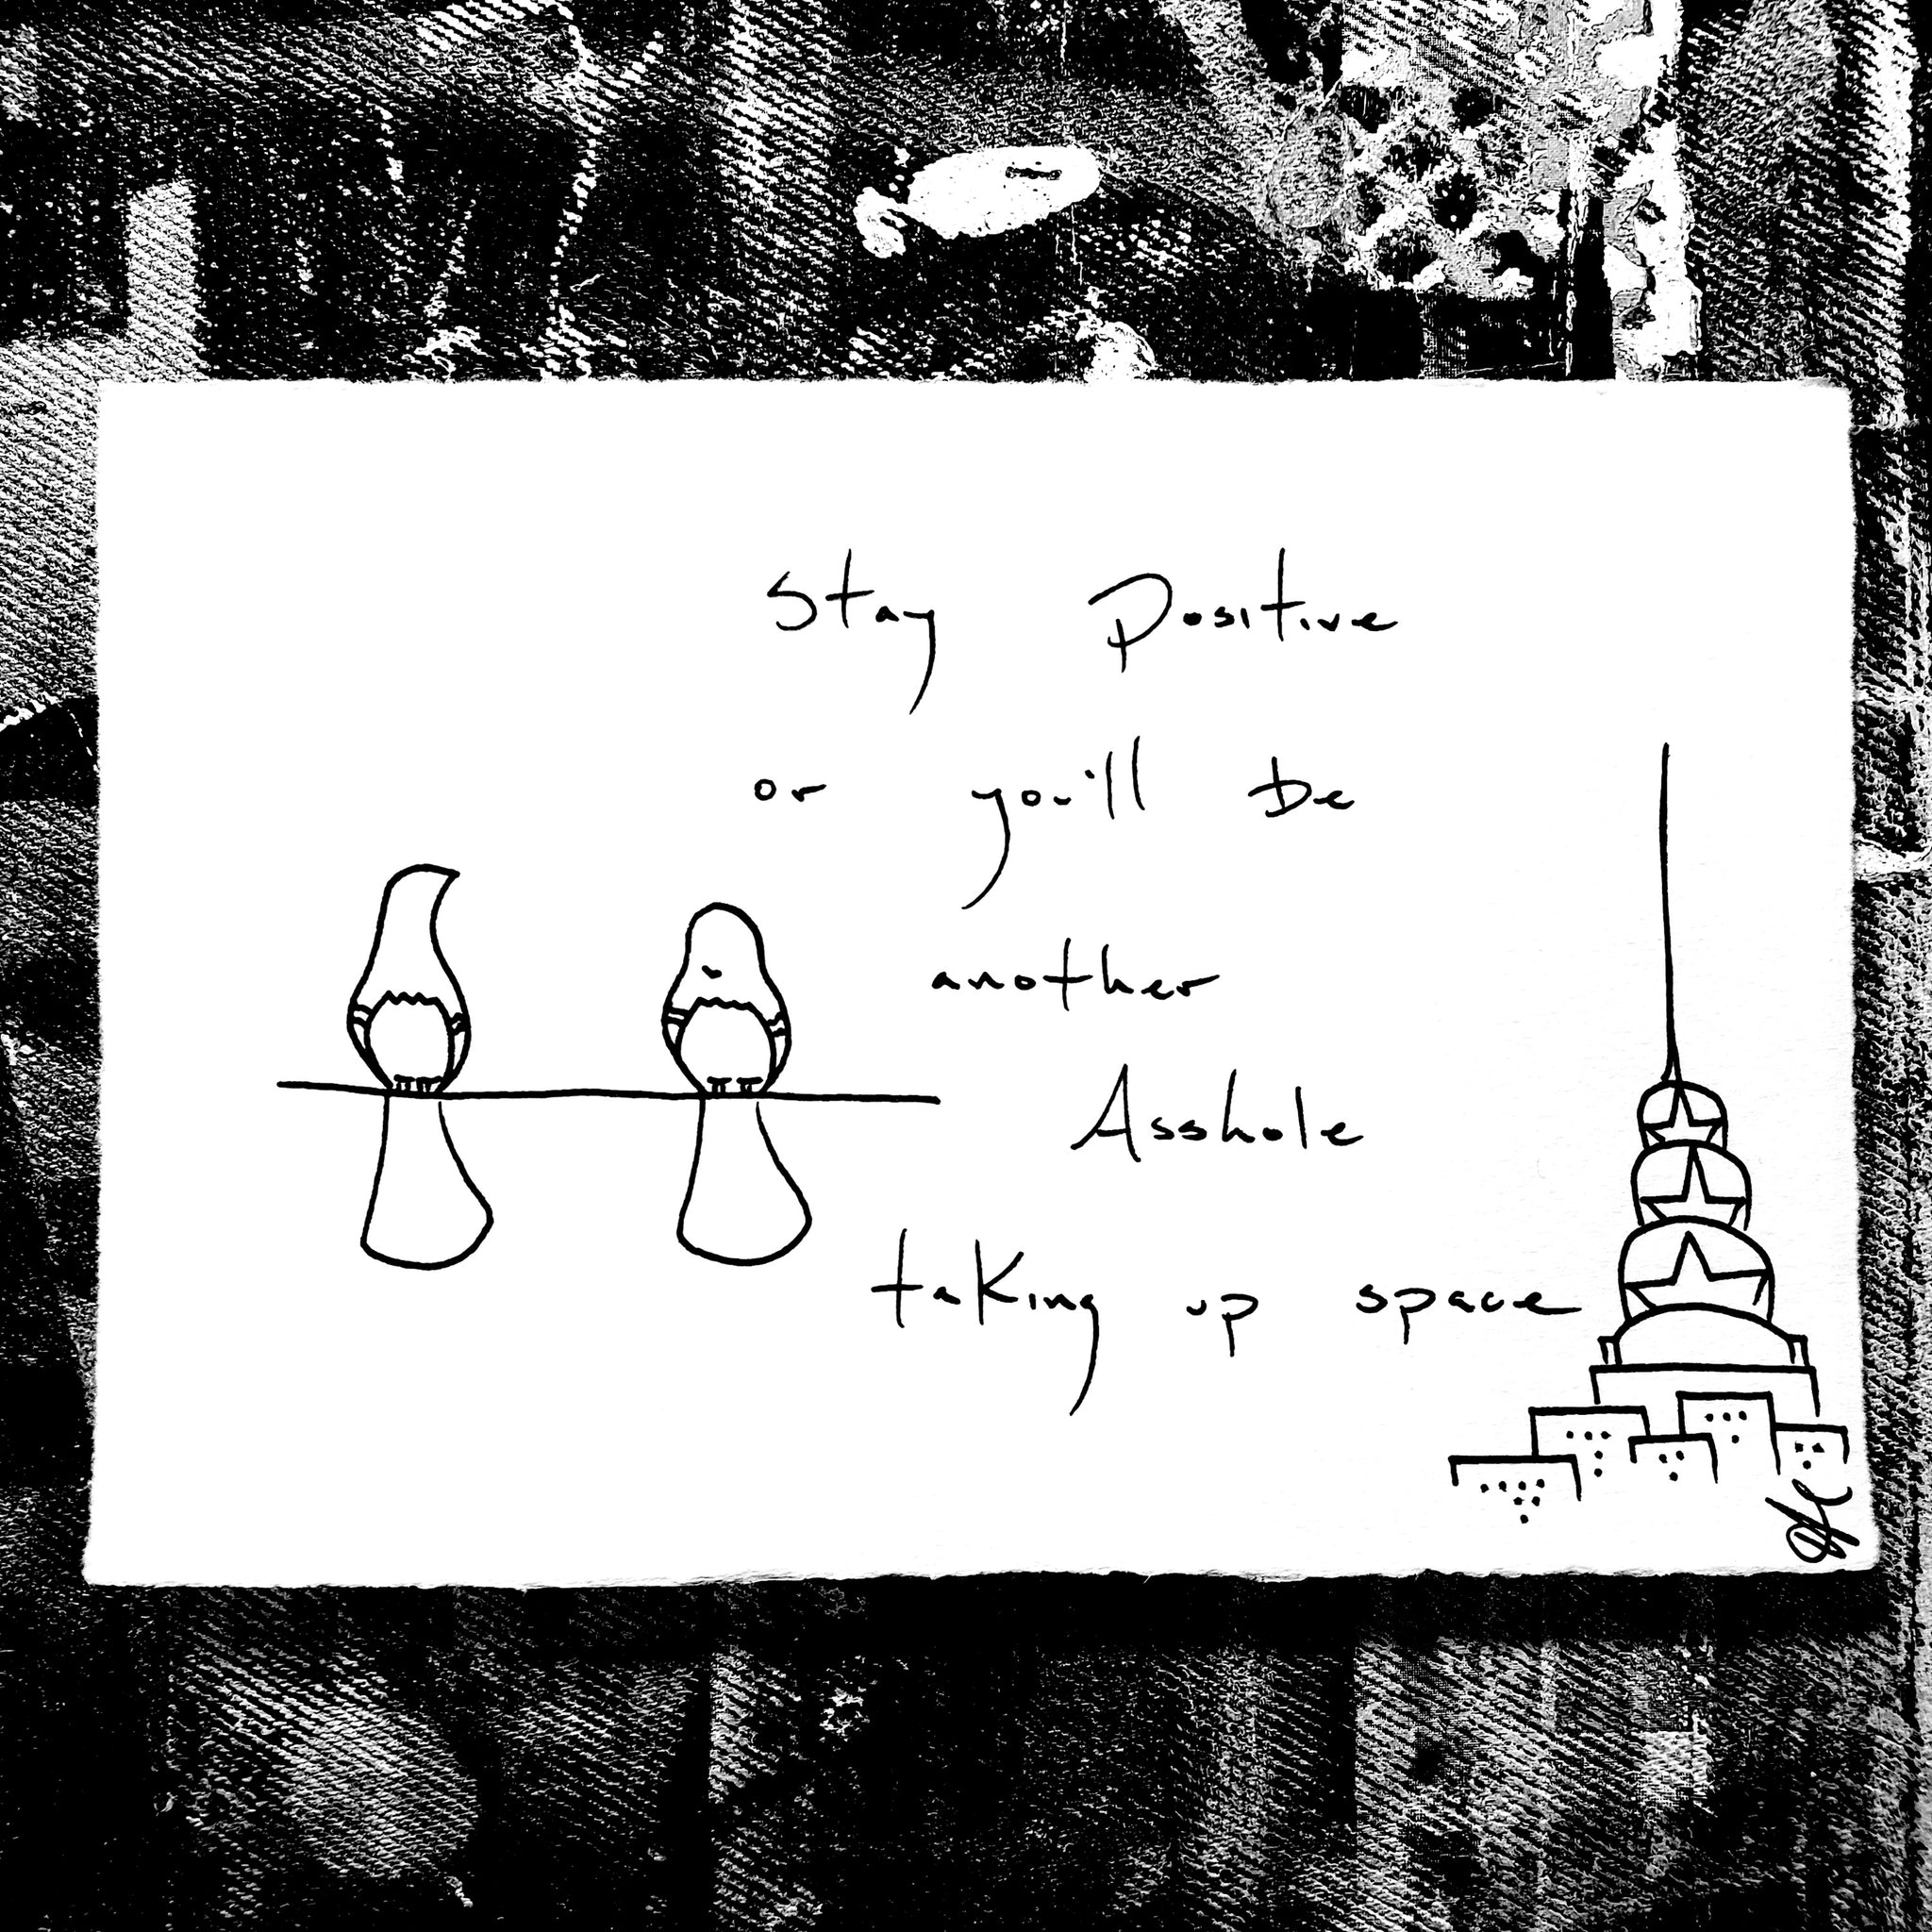 Stay Positive
or you'll be
another
Asshole
taking up space